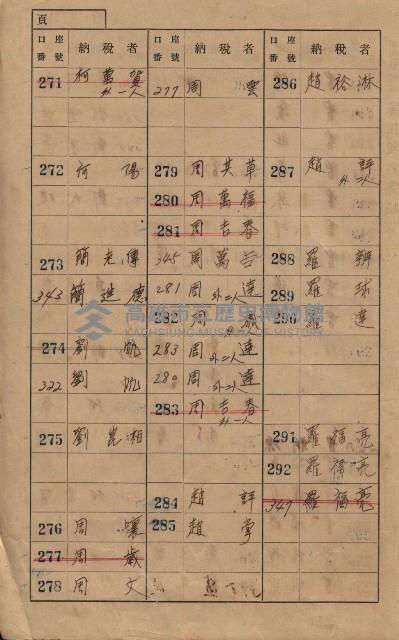 頁
口座番號 納稅者
271 柯萬賀
外一人
272 何陽
273 簡老傳
343 簡進德
274 劉
322 劉
275 劉崑湘
276 周
277 周歲
278 周文
口座番號 納稅者
277 周雲
279 周其草
280 周萬福
281 周吉春
345 周萬吉
281 周達
外二人
282 周
283 周達
外二人
280 周達
外二人
283 周吉春
外一人
284 趙評
285 趙掌
口座番號 納稅者
286 趙裕淋
287 趙評
外二人
288 羅
289 羅球
290 羅達
291 羅福亮
292 羅福亮
347 羅福亮
高雄市立歷史博物館
KAOHSIUNG MUSEUM OF HISTORY